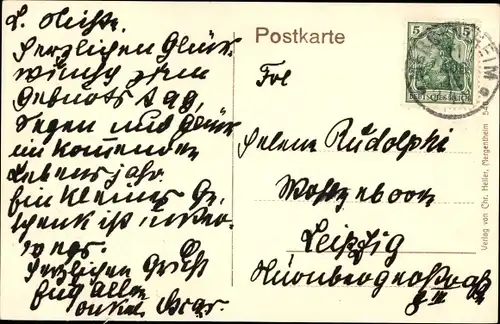 L.
Herzlichen Glück
wunsch zum
Geburtstag,
Segen und Glück
im kommenden
Lebensjahr.
Ein kleines Ge-
schenk ist unter-
wegs.
Herzlichen Gruß
Euch allen
onkel Oscar.
Postkarte
5 5
DEUTSCHES REICH
HEIM
Frl
Helene Rudolphi
Leipzig
Nürnbergerstraße
Verlag von Chr. Heller, Mergentheim